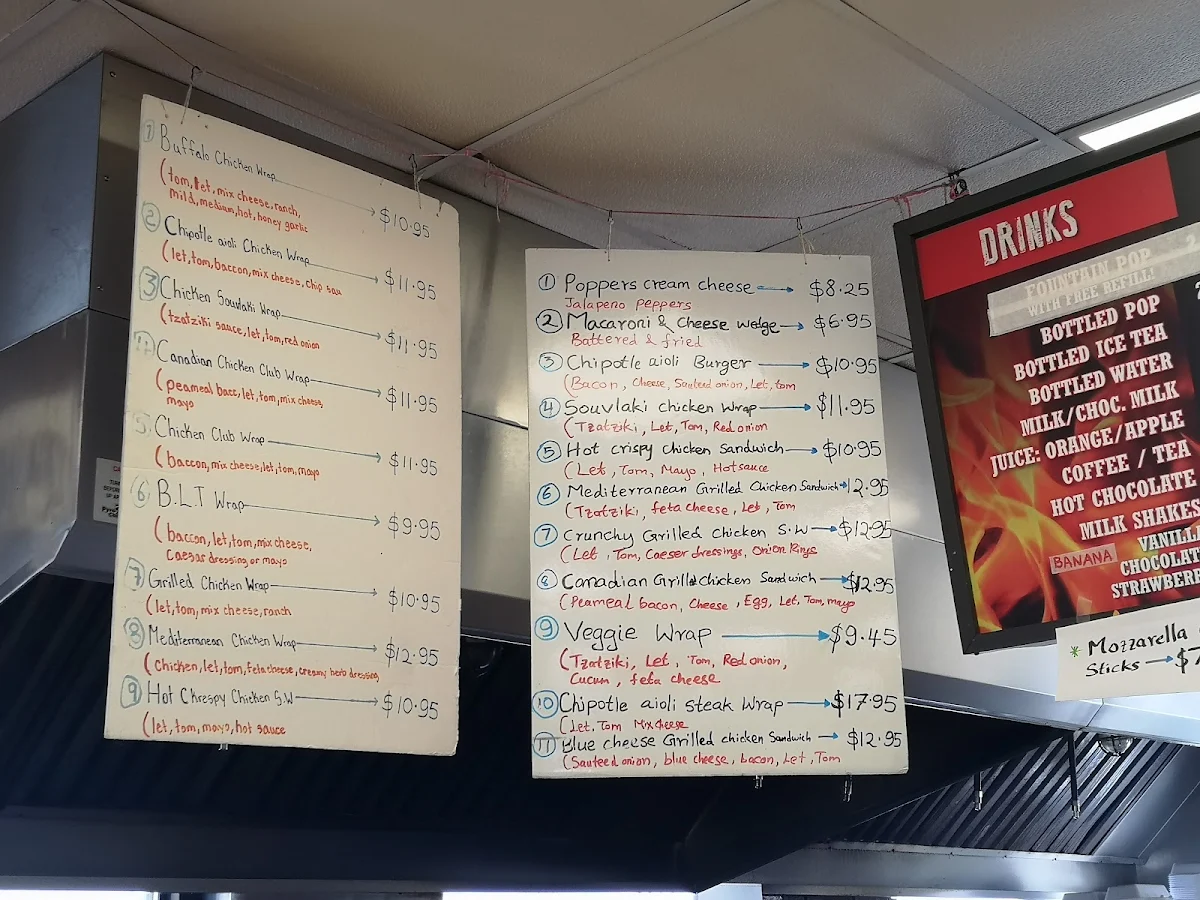 1 Buffalo Chicken Wrap $10.95
(tom, let, mix cheese, ranch,
mild, medium, hot, honey garlic
2 Chipotle aioli Chicken Wrap $11.95
(let, tom, baccon, mix cheese, chip sau
3 Chicken Souvlaki Wrap $11.95
(tzatziki sauce, let, tom, red onion
4 Canadian Chicken Club Wrap $11.95
(peameal bacc, let, tom, mix cheese,
mayo
5 Chicken Club Wrap $11.95
(baccon, mix cheese, let, tom, mayo
6 B.L.T Wrap $9.95
(bacon, let, tom, mix cheese,
Caesar dressing or mayo
7 Grilled Chicken Wrap $10.95
(let, tom, mix cheese, ranch
8 Mediterranean Chicken Wrap $12.95
(chicken, let, tom, feta cheese, creamy herb dressing
9 Hot Chrespy Chicken S.W $10.95
(let, tom, mayo, hot sauce
1 Poppers cream cheese $8.25
Jalapeno Peppers
2 Macaroni & Cheese wedge $6.95
Battered & fried
3 Chipotle aioli Burger $10.95
(Bacon, Cheese, Sauteed onion, Let, tom
4 Souvlaki chicken Wrap $11.95
(Tzatziki, Let, Tom, Red onion
5 Hot crispy chicken Sandwich $10.95
(Let, Tom, Mayo, Hot sauce
6 Mediterranean Grilled Chicken Sandwich 12.95
(Tzatziki, feta cheese, Let, Tom
7 Crunchy Grilled chicken S.W $12.95
(Let, Tom, Caeser dressings, Onion Rings
8 Canadian Grill chicken Sandwich $12.95
(Peameal bacon, Cheese, Egg, Let, Tom, mayo
9 Veggie Wrap $9.45
(Tzatziki, Let, Tom, Red onion,
Cucum, feta cheese
10 Chipotle aioli steak Wrap $17.95
(Let, Tom Mix cheese
11 Blue cheese Grilled chicken Sandwich $12.95
(Sauteed onion, blue cheese, bacon, Let, Tom
DRINKS
FOUNTAIN POP
WITH FREE REFILL!
BOTTLED POP
BOTTLED ICE TEA
BOTTLED WATER
MILK/CHOC. MILK
JUICE: ORANGE/APPLE
COFFEE / TEA
HOT CHOCOLATE
MILK SHAKES
VANILL
BANANA CHOCOLAT
STRAWBERR
* Mozzarella
Sticks $7